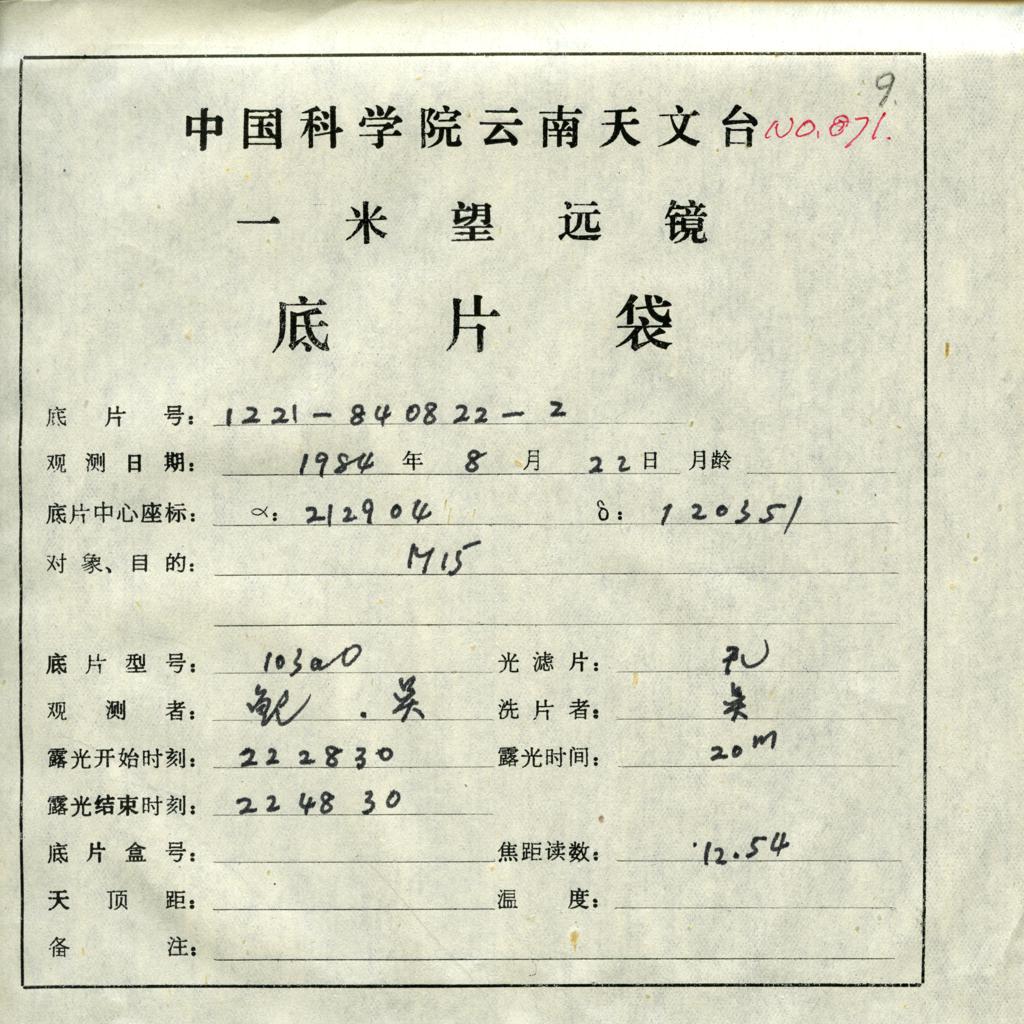 9.
中国科学院云南天文台 NO.871.
一米望远镜
底片袋
底片号: 1221-840822-2
观测日期: 1984年8月22日 月龄
底片中心座标: α: 212904 δ: 120351
对象、目的: M15
底片型号: 103aO 光滤片:
观测者: 鲍.吴 洗片者: 吴
露光开始时刻: 222830 露光时间: 20m
露光结束时刻: 224830
底片盒号: 焦距读数: 12.54
天顶距: 温度:
备注: